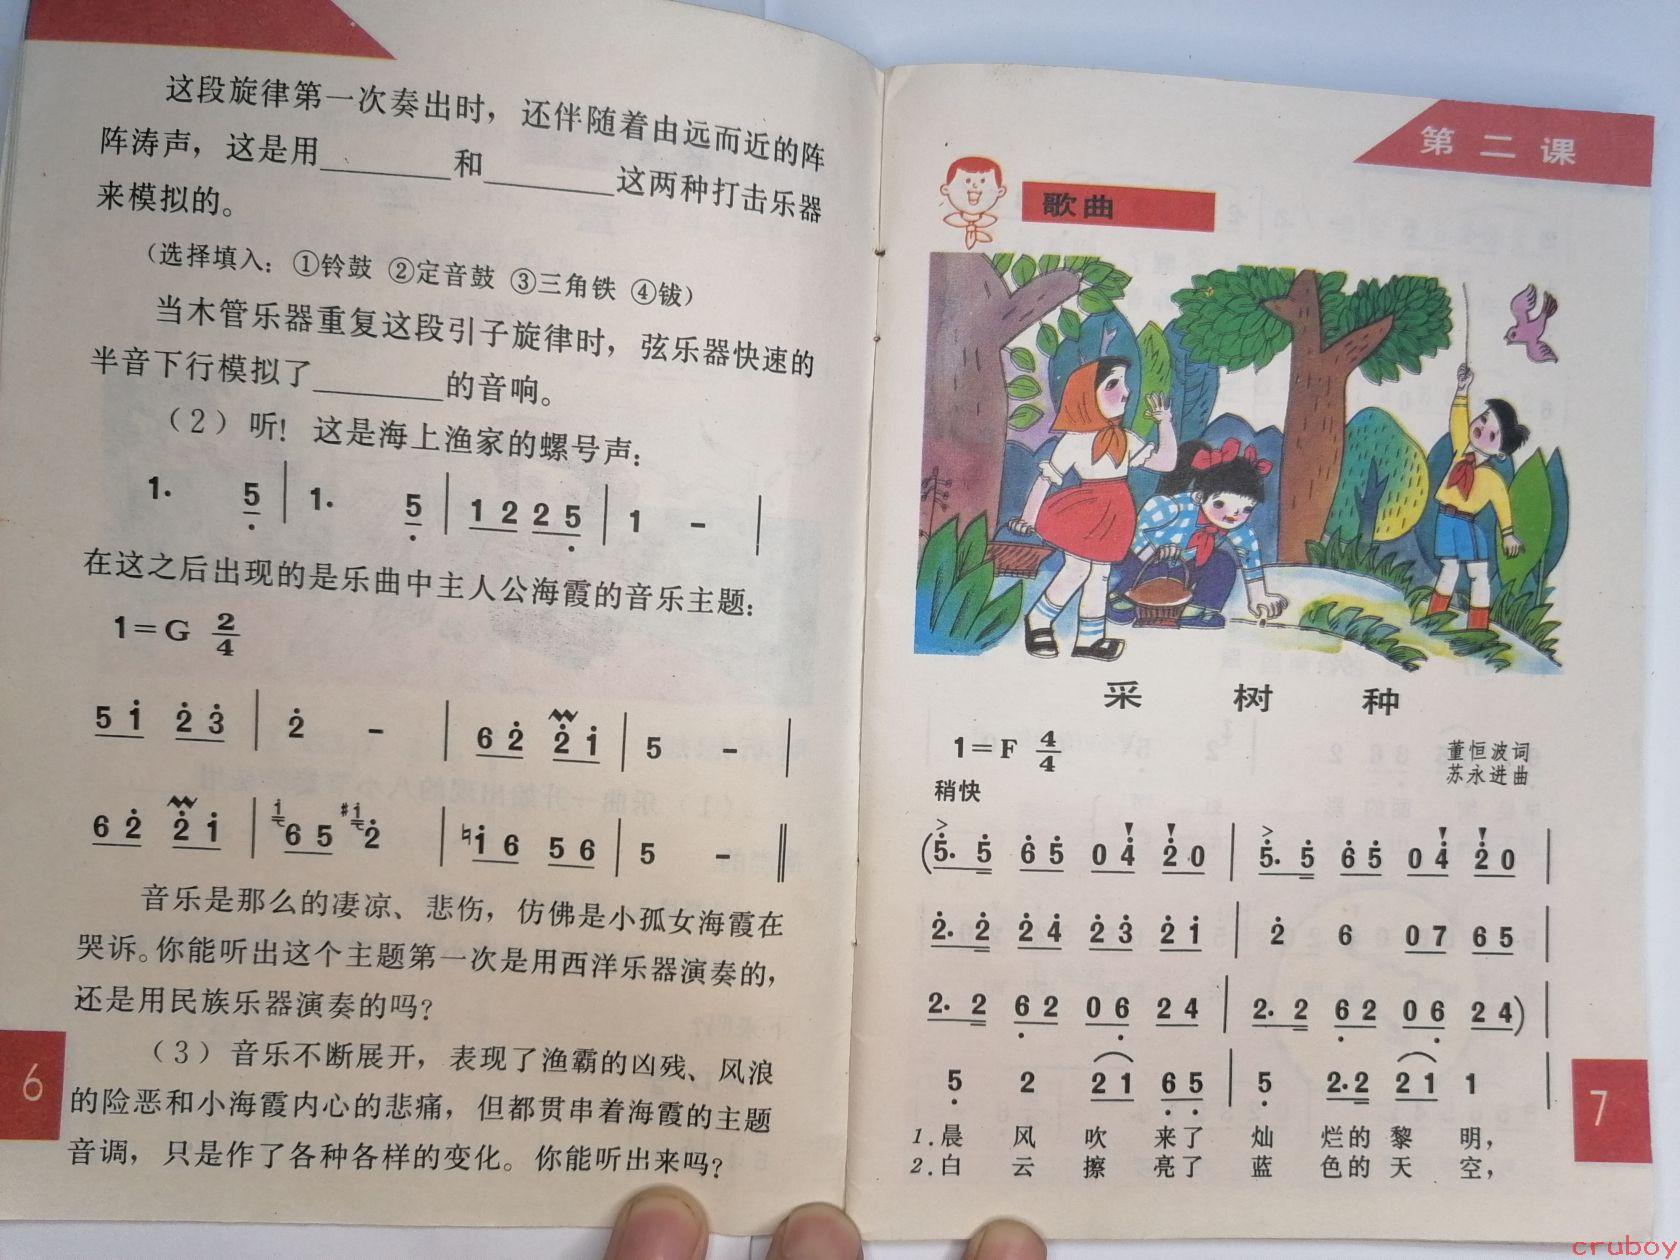 这段旋律第一次奏出时，还伴随着由远而近的阵
阵涛声，这是用________和________这两种打击乐器
来模拟的。
（选择填入：①铃鼓 ②定音鼓 ③三角铁 ④钹）
当木管乐器重复这段引子旋律时，弦乐器快速的
半音下行模拟了________的音响。
（2）听！这是海上渔家的螺号声：
1. 5 | 1. 5 | 1 2 2 5 | 1 - |
在这之后出现的是乐曲中主人公海霞的音乐主题：
1=G 2/4
5 1 2 3 | 2 - | 6 2 2 1 | 5 - |
6 2 2 1 | 1 6 5 #1 2 | ♮1 6 5 6 | 5 - ‖
音乐是那么的凄凉、悲伤，仿佛是小孤女海霞在
哭诉。你能听出这个主题第一次是用西洋乐器演奏的，
还是用民族乐器演奏的吗？
（3）音乐不断展开，表现了渔霸的凶残、风浪
的险恶和小海霞内心的悲痛，但都贯串着海霞的主题
音调，只是作了各种各样的变化。你能听出来吗？
6
第二课
歌曲
采树种
1=F 4/4
董恒波词
苏永进曲
稍快
(5. 5 6 5 0 4 2 0 | 5. 5 6 5 0 4 2 0 |
2. 2 2 4 2 3 2 1 | 2 6 0 7 6 5 |
2. 2 6 2 0 6 2 4 | 2. 2 6 2 0 6 2 4) |
5 2 2 1 6 5 | 5 2. 2 2 1 1 |
1.晨风吹来了灿烂的黎明，
2.白云擦亮了蓝色的天空，
7
cruboy